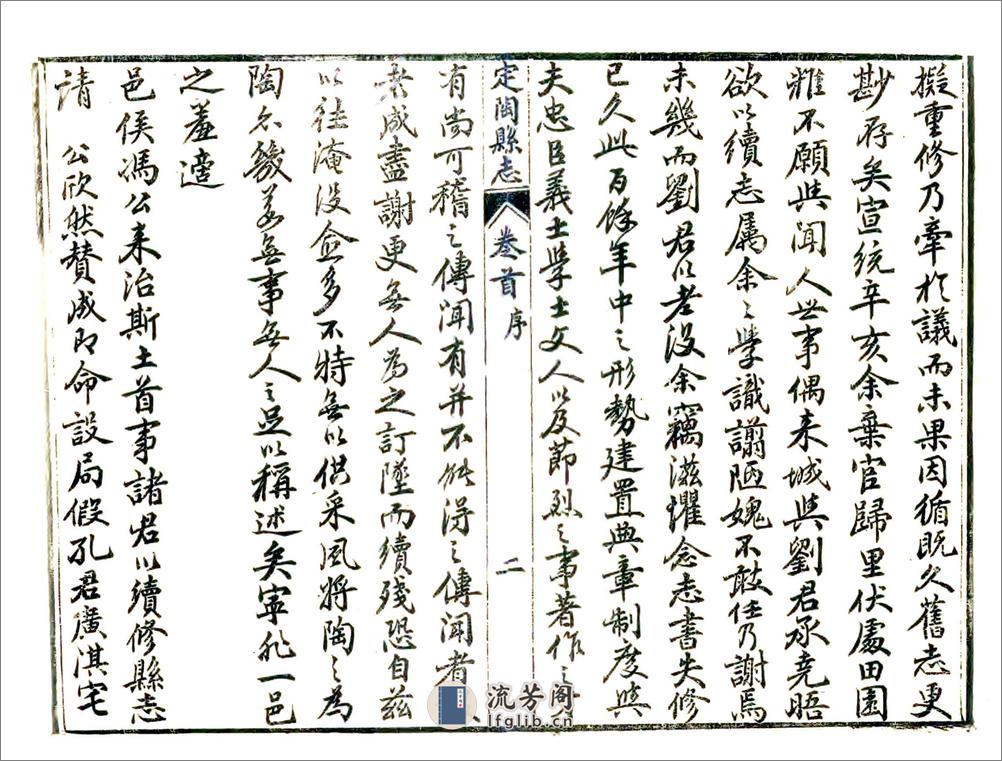 擬重修乃牽於議而未果因循既久舊志更
尠存矣宣統辛亥余棄官歸里伏處田園
雅不願與聞人世事偶来城與劉君承堯晤
欲以續志属余之學識謭陋媿不敢任乃謝焉
未幾而劉君以老没余竊滋懼念志書失修
已久此百餘年中之形勢建置典章制度與
夫忠臣義士學士文人以及節烈之事著作之
定陶縣志
卷首
序
二
有尚可稽之傳聞有并不能得之傳聞者
咸盡謝更無人為之訂墜而續残恐自兹
以往淹没愈多不特無以供采風将陶之為
陶亦幾若無事無人之足以稱述矣寧非一邑
之羞適
邑侯馮公来治斯土首事諸君以續修縣志
請 公欣然赞成即命設局假孔君廣淇宅
流芳阁
lfglib.cn